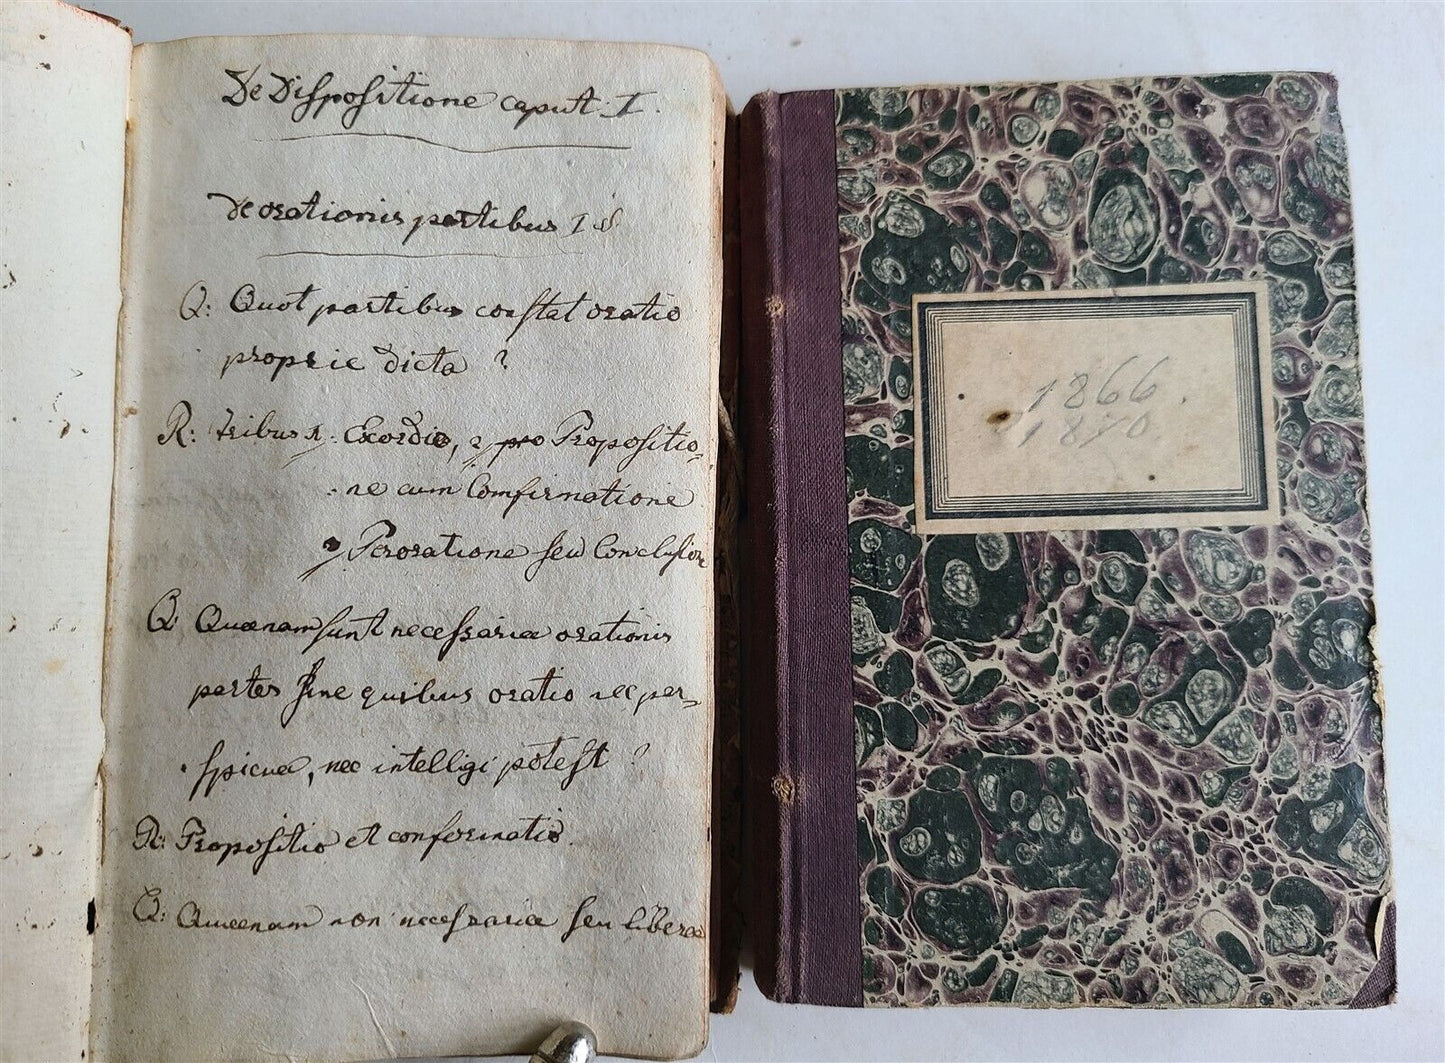 De Dispositione caput I.
De orationis partibus I §
Q: Quot partibus constat oratio
proprie dicta ?
R: tribus 1. Exordio, 2 pro Propositio
ne cum Comfirmatione
3 Peroratione seu Conclusion
Q: Quænam sunt necessariæ orationis
partes sine quibus oratio nec per
spicua, nec intelligi potest ?
R: Propositio et confirmatio.
Q: Quænam non necessariæ seu liberæ
1866.
1870.